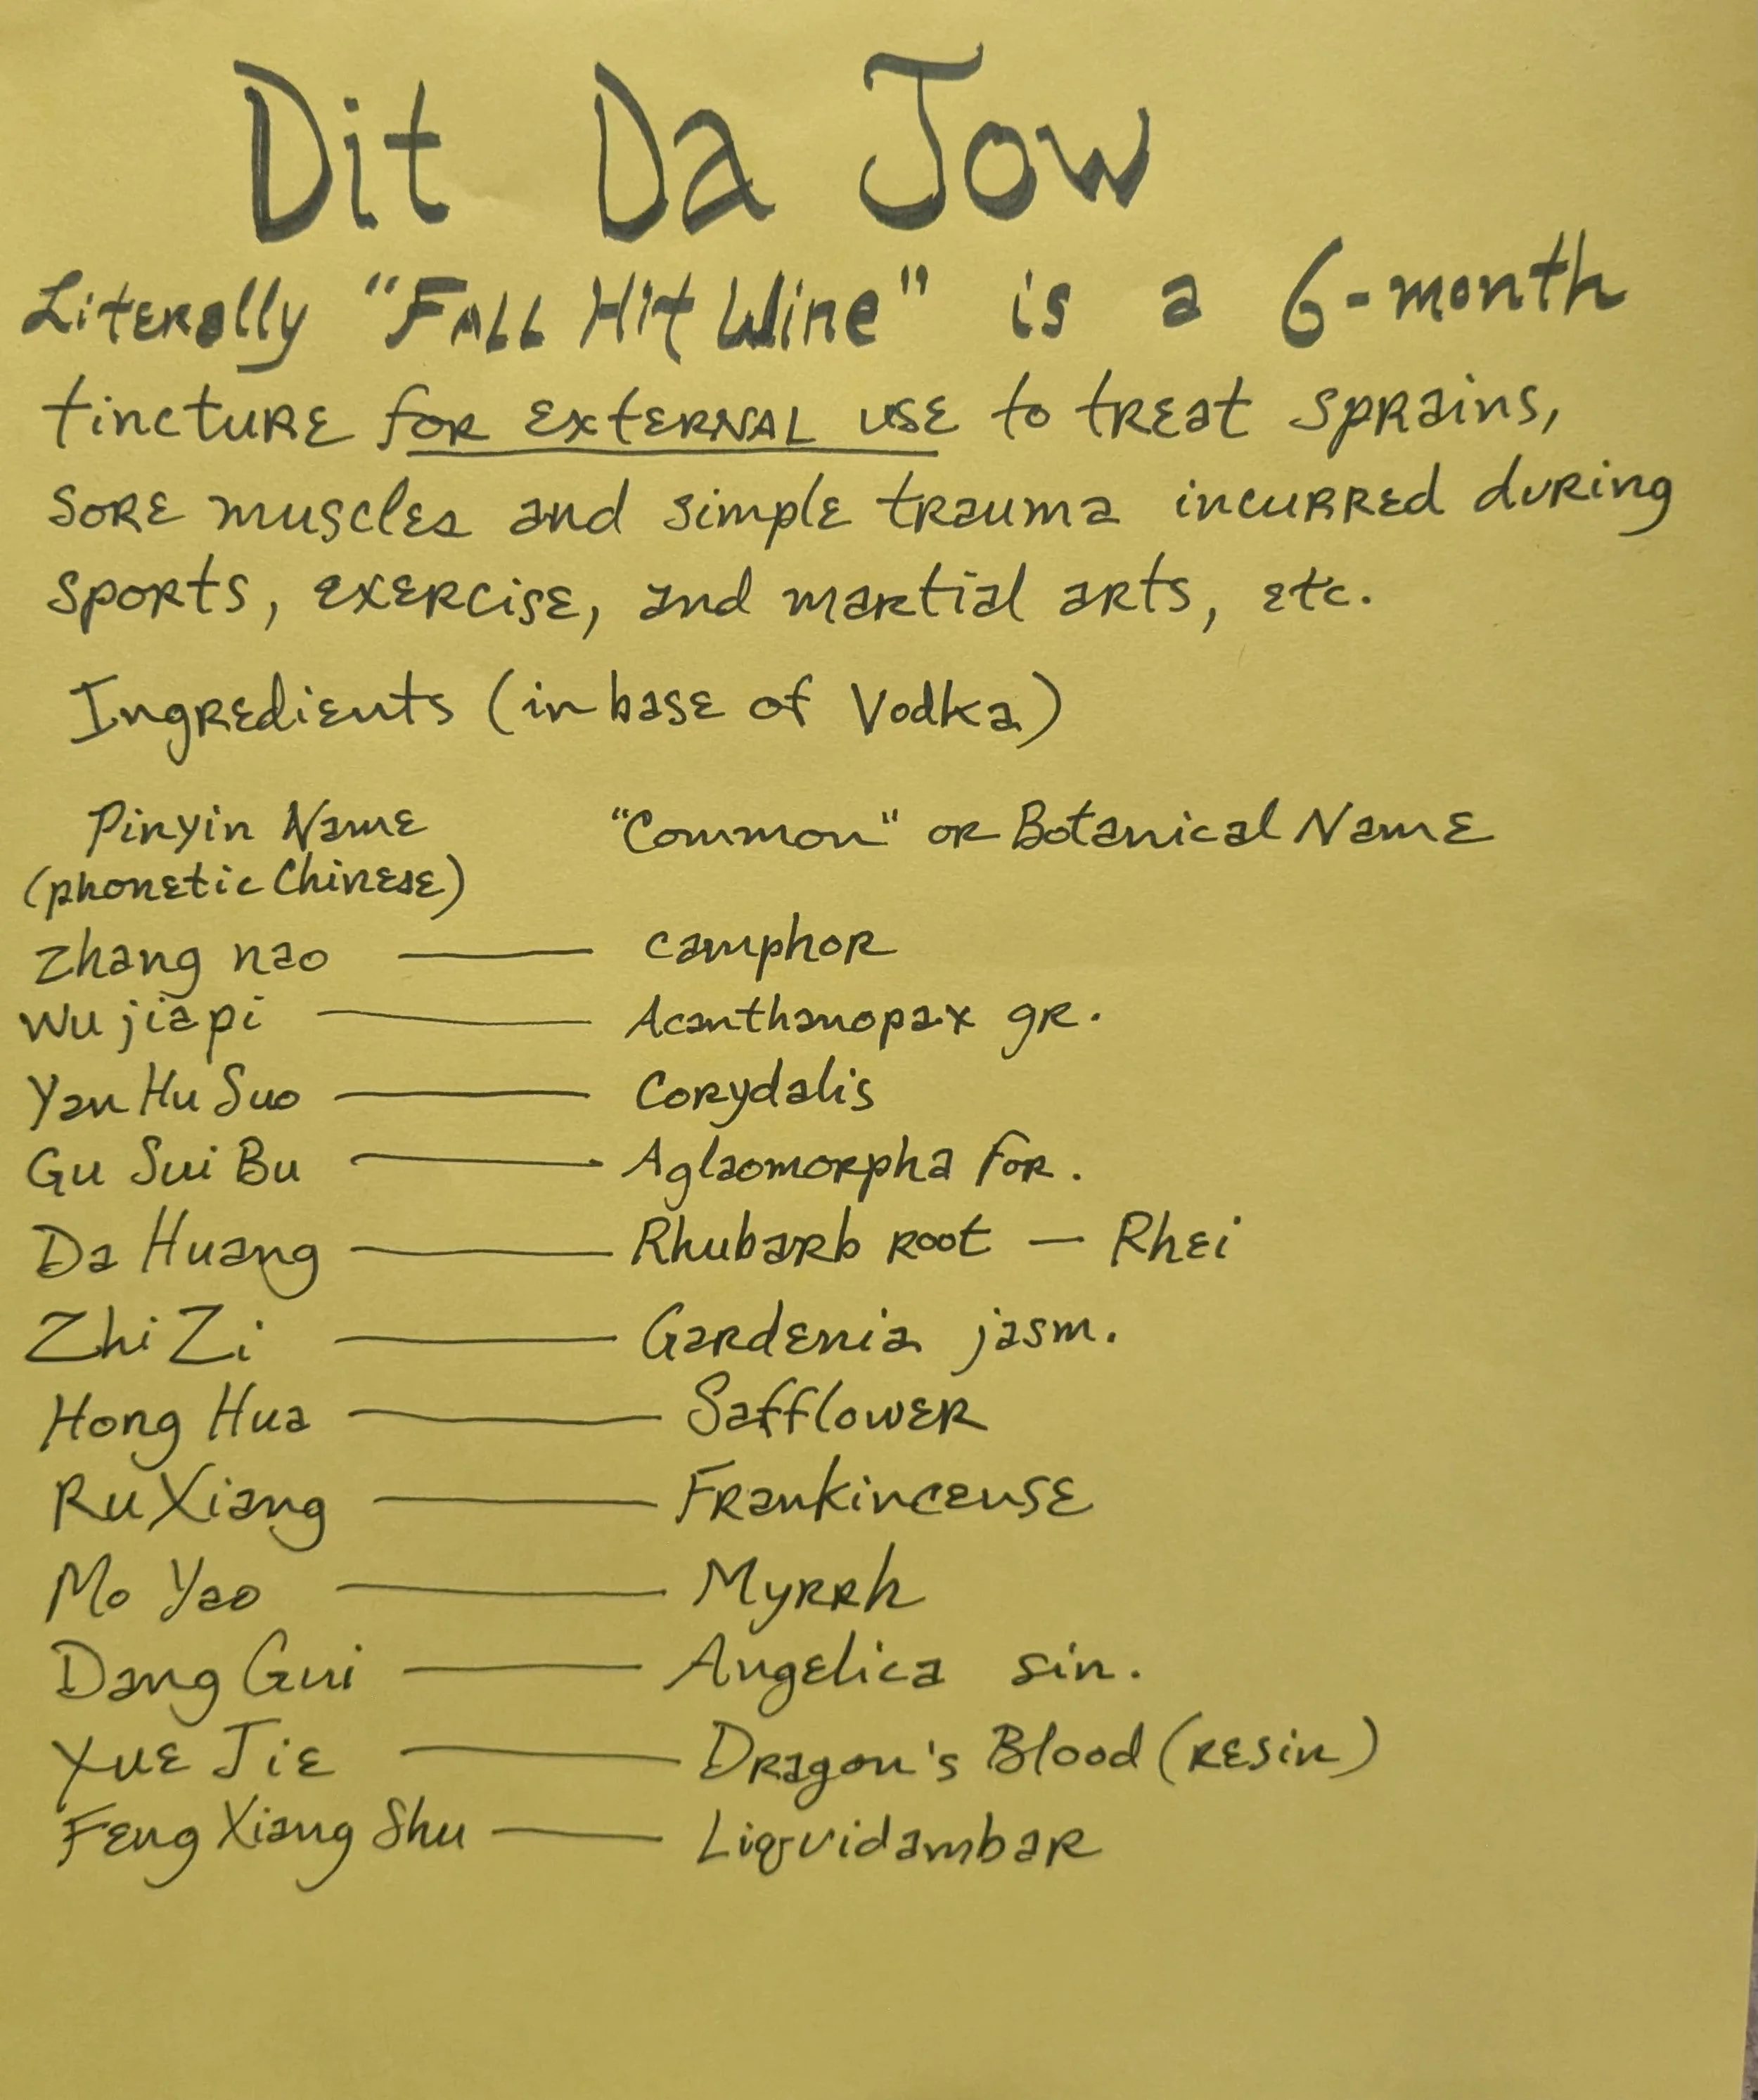 Dit Da Jow
Literally "Fall Hit Wine" is a 6-month
tincture for external use to treat sprains,
sore muscles and simple trauma incurred during
sports, exercise, and martial arts, etc.
Ingredients (in base of Vodka)
Pinyin Name "Common" or Botanical Name
(phonetic Chinese)
Zhang nao — camphor
Wu jia pi — Acanthanopax gr.
Yan Hu Suo — Corydalis
Gu Sui Bu — Aglaomorpha for.
Da Huang — Rhubarb root — Rhei
Zhi Zi — Gardenia jasm.
Hong Hua — Safflower
Ru Xiang — Frankincense
Mo Yao — Myrrh
Dang Gui — Angelica sin.
Xue Jie — Dragon's Blood (resin)
Feng Xiang Shu — Liquidambar